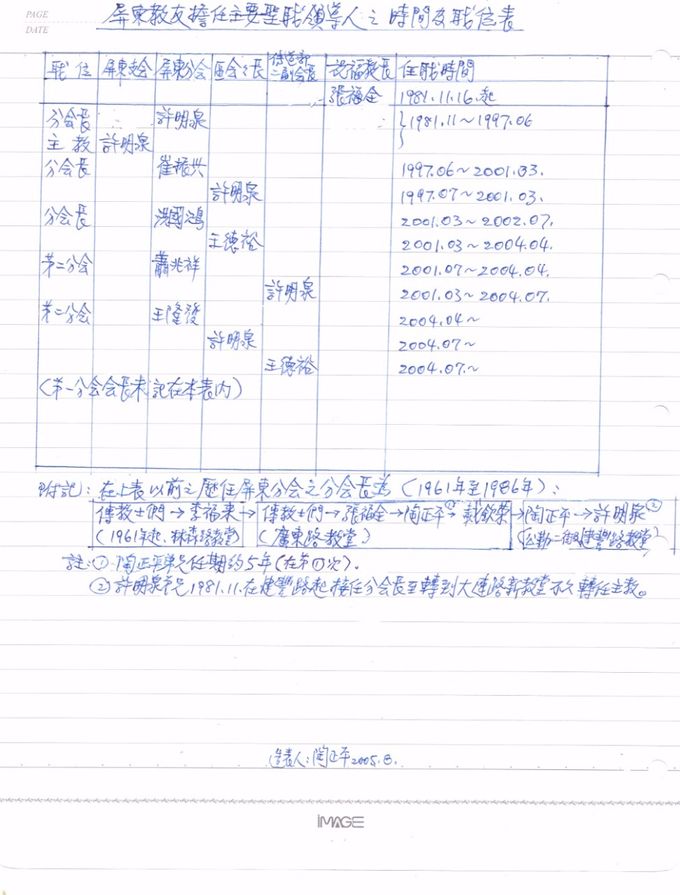 PAGE
DATE
屏東教友擔任主要聖職領導人之時間及職位表
職位 屏東支会 屏東分会 區会会長 傳道部二副会長 祝福教長 任職時間
張福全 1981.11.16.起
分会長 許明泉 {1981.11～1997.06
主教 許明泉 }
分会長 崔振兴 1997.06～2001.03.
許明泉 1997.07～2001.03.
分会長 洪國鴻 2001.03～2002.07.
王德裕 2001.03～2004.04.
第二分会 蕭兆祥 2001.07～2004.04.
許明泉 2001.03～2004.07.
第二分会 王隆發 2004.04～
許明泉 2004.07～
王德裕 2004.07.～
(第一分会会長未記在本表內)
附記：在上表以前之歷任屏東分会之分会長為(1961年至1986年)：
傳教士們→李福来→傳教士們→張福全→陶正平①→戴欽榮→陶正平→許明泉②
(1961年起.林森路教堂) (廣東路教堂) (公勤二街及建豐路教堂)
註：①陶正平弟兄任期約5年(在第四次).
②許明泉弟兄1981.11.在建豐路起接任分会長至轉到大連路新教堂不久轉任主教。
造表人:陶正平2005.8.
iMAGE